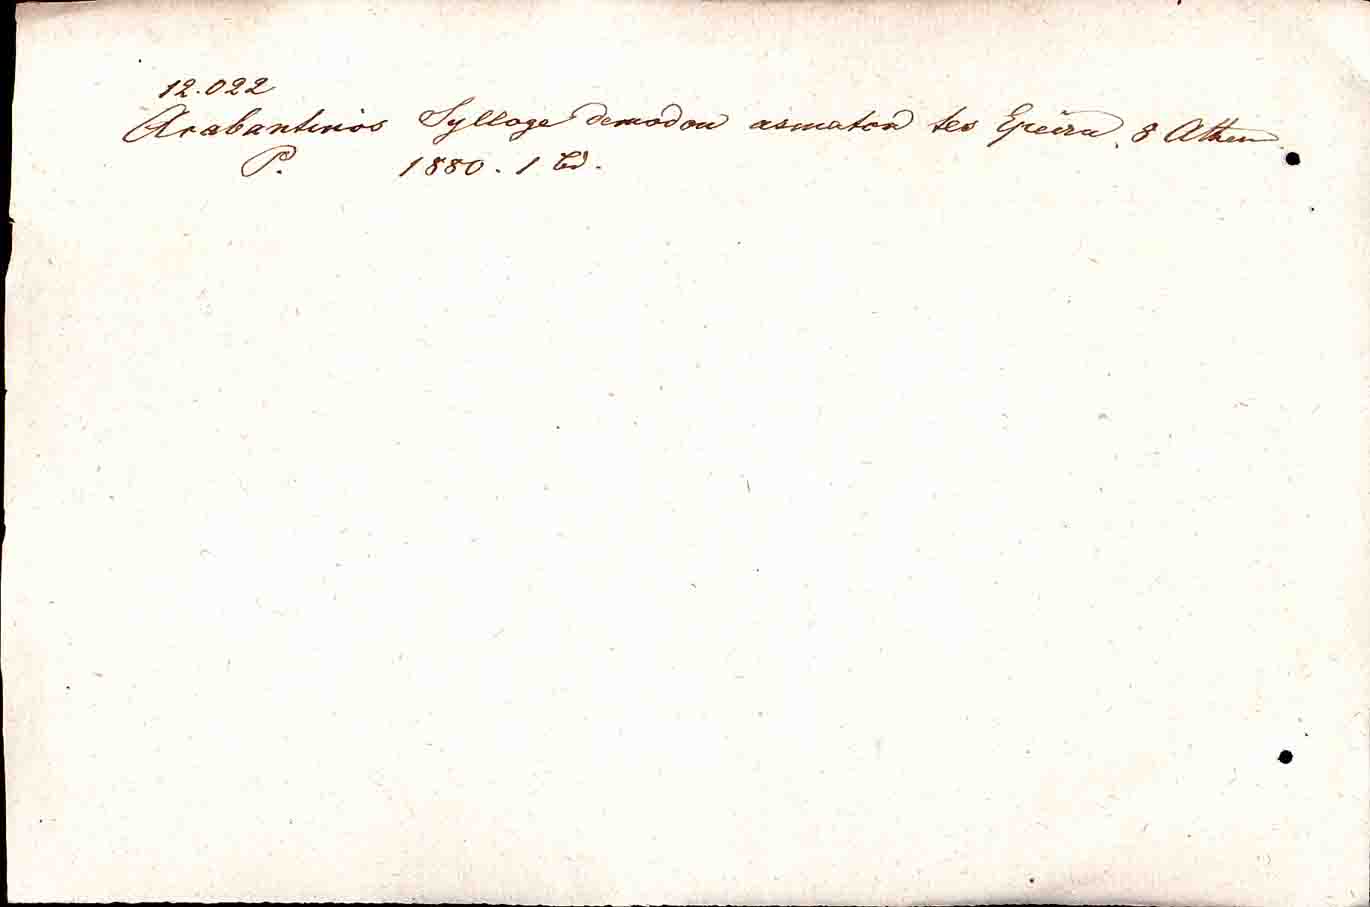 12.022
Arabantinos Sylloge demodon asmaton tes Epeiru, 8 Athen
P. 1880. 1 Bd.